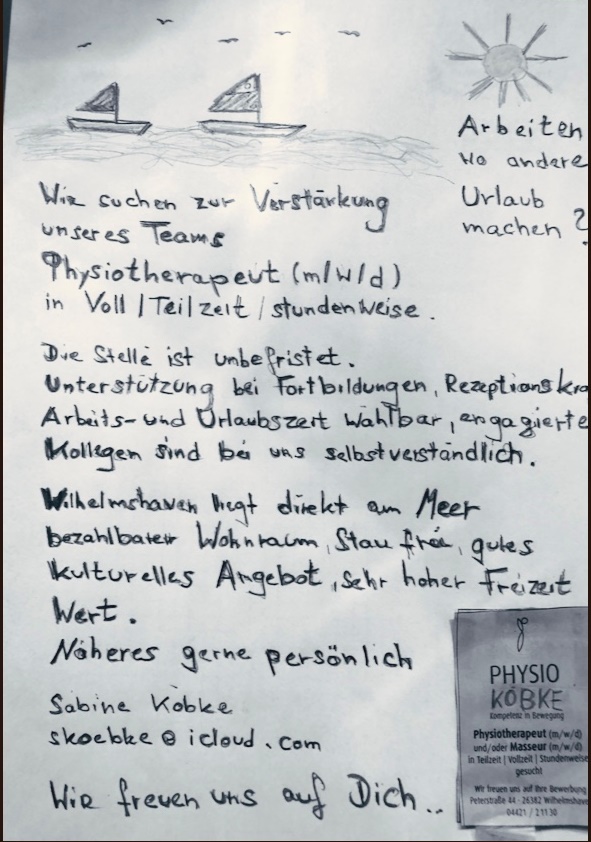 Arbeiten
wo andere
Urlaub
machen ?
Wir suchen zur Verstärkung
unseres Teams
Physiotherapeut (m/w/d)
in Voll / Teilzeit / stundenweise.
Die Stelle ist unbefristet.
Unterstützung bei Fortbildungen, Rezeptionskra
Arbeits- und Urlaubszeit wählbar, engagierte
Kollegen sind bei uns selbstverständlich.
Wilhelmshaven liegt direkt am Meer
bezahlbarer Wohnraum, Stau frei, gutes
kulturelles Angebot, sehr hoher Freizeit
Wert.
Näheres gerne persönlich
Sabine Köbke
skoebke@icloud.com
Wir freuen uns auf Dich..
PHYSIO
KÖBKE
Kompetenz in Bewegung
Physiotherapeut (m/w/d)
und/oder Masseur (m/w/d)
in Teilzeit | Vollzeit | Stundenweise
gesucht
Wir freuen uns auf Ihre Bewerbung
Peterstraße 44 · 26382 Wilhelmshave
04421 / 211 30